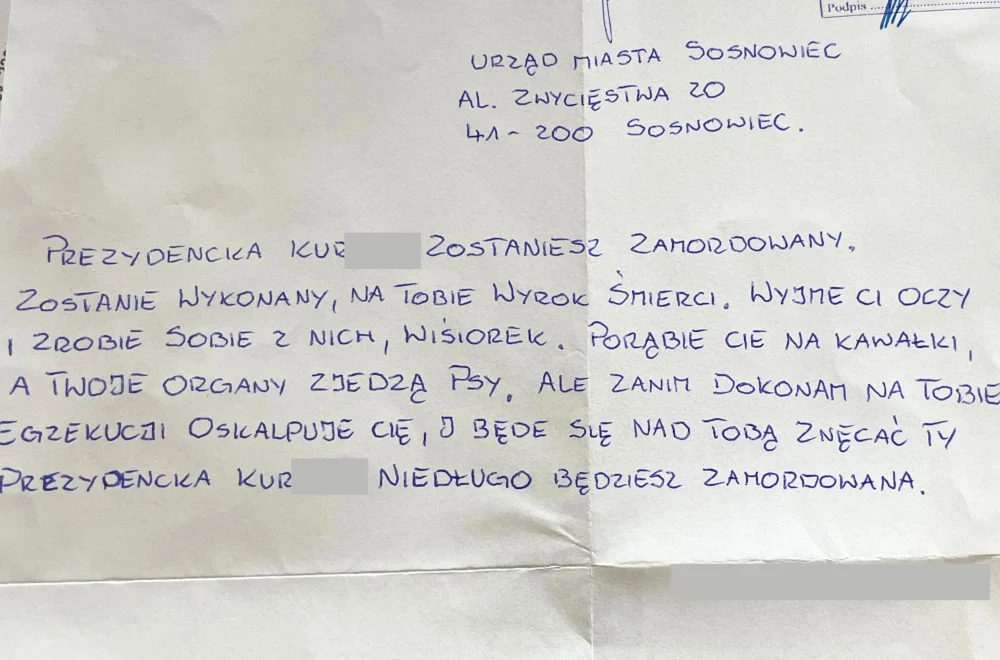 Podpis
URZĄD MIASTA SOSNOWIEC
AL. ZWYCIĘSTWA 20
41-200 SOSNOWIEC.
PREZYDENCKA KUR ZOSTANIESZ ZAMORDOWANY.
ZOSTANIE WYKONANY, NA TOBIE WYROK ŚMIERCI. WYJME CI OCZY
I ZROBIE SOBIE Z NICH, WIŚIOREK. PORĄBIE CIE NA KAWAŁKI,
A TWOJE ORGANY ZJEDZĄ PSY. ALE ZANIM DOKONAM NA TOBIE
EGZEKUCJI OSKALPUJE CIĘ, I BĘDE SIĘ NAD TOBĄ ZNĘCAĆ TY
PREZYDENCKA KUR NIEDŁUGO BĘDZIESZ ZAMORDOWANA.